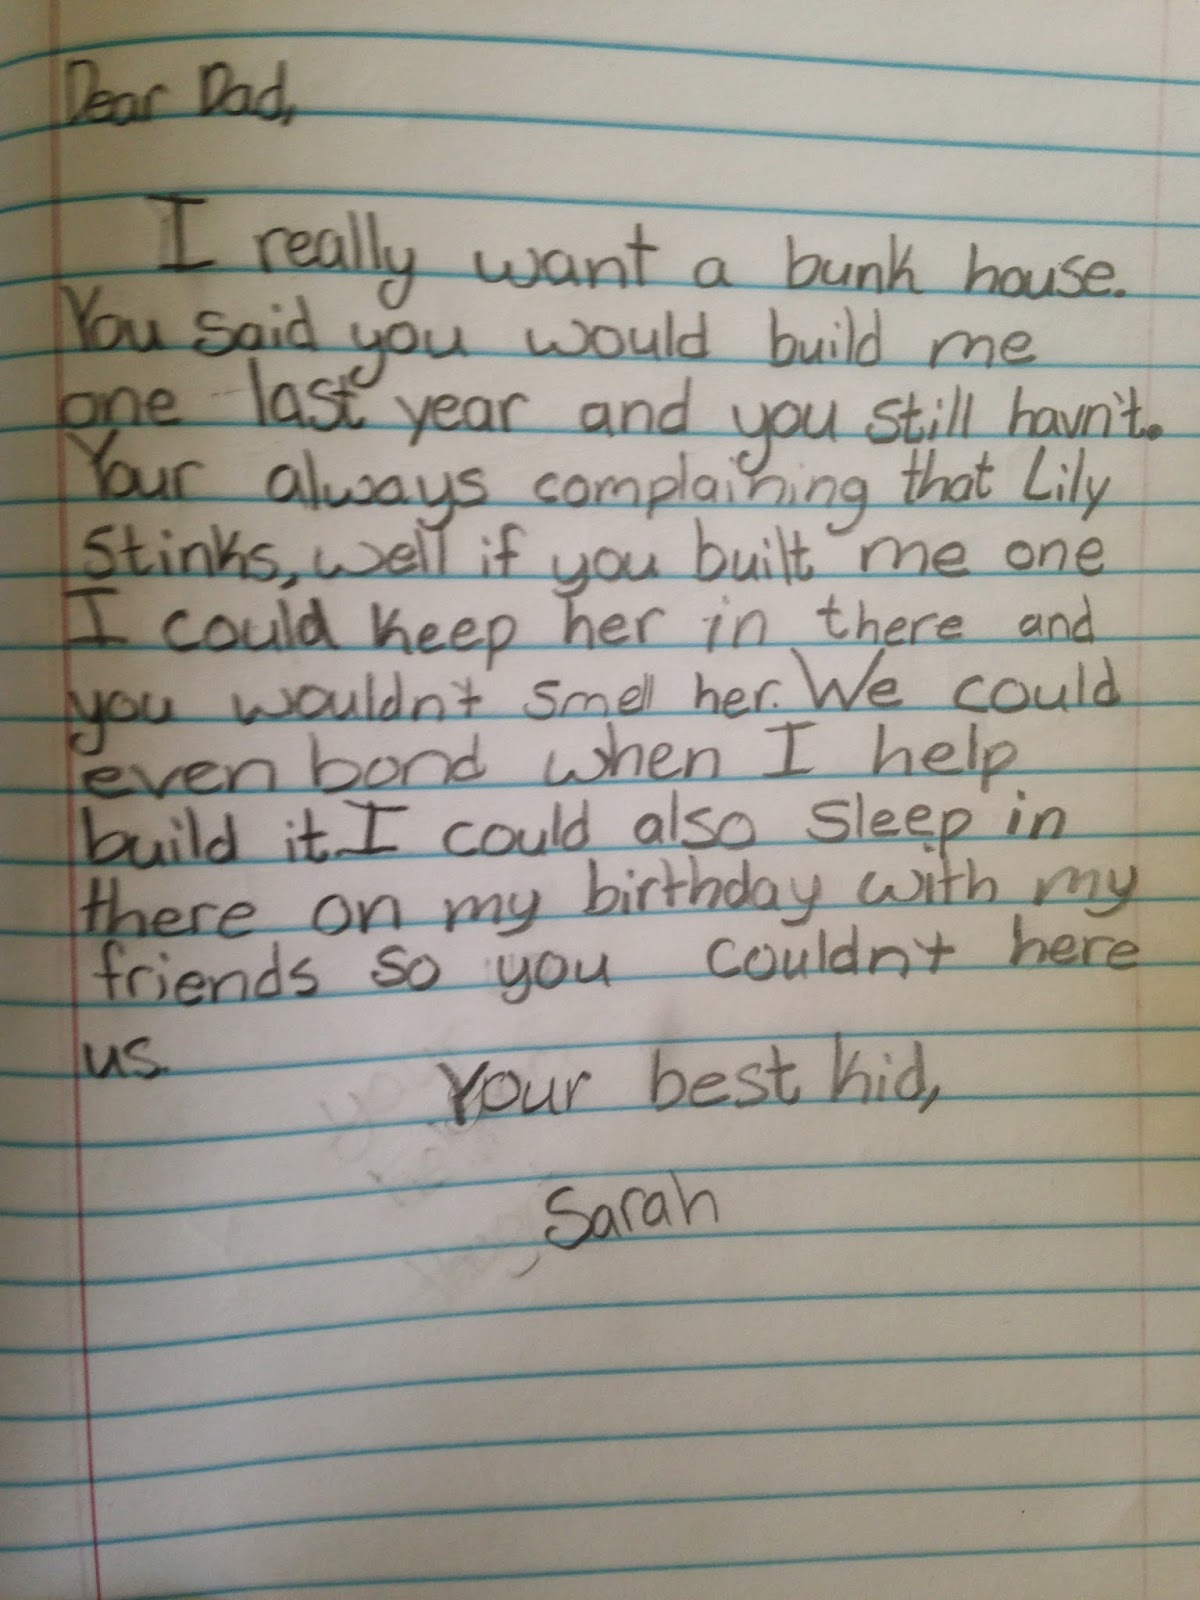 Dear Dad,
I really want a bunk house.
You said you would build me
one last year and you still havn't.
Your always complaining that Lily
Stinks, well if you built me one
I could keep her in there and
you wouldn't smell her. We could
even bond when I help
build it. I could also sleep in
there on my birthday with my
friends so you couldn't here
us.
Your best kid,
Sarah